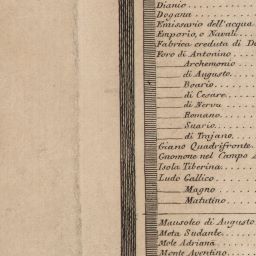 Dianio
Dogana
Emissario dell'acqua
Emporio, o Navali
Fabrica creduta di
Foro di Antonino
Archemonio
di Augusto
Boario
di Cesare
di Nerva
Romano
Suario
di Trajano
Giano Quadrifronte
Gnomone nel Campo
Isola Tiberina
Ludo Gallico
Magno
Matutino
Mausoleo di Augusto
Meta Sudante
Mole Adriana
Monte Aventino